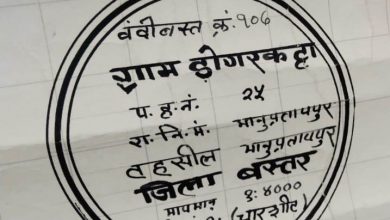 वंदोबस्त क्रं. १०६
ग्राम डोंगरकट्टा
प. ह. नं. २५
रा. नि. मं. भानुप्रतापपुर
तहसील भानुप्रतापपुर
जिला बस्तर
मापमान १ः४०००
(चारशीट)